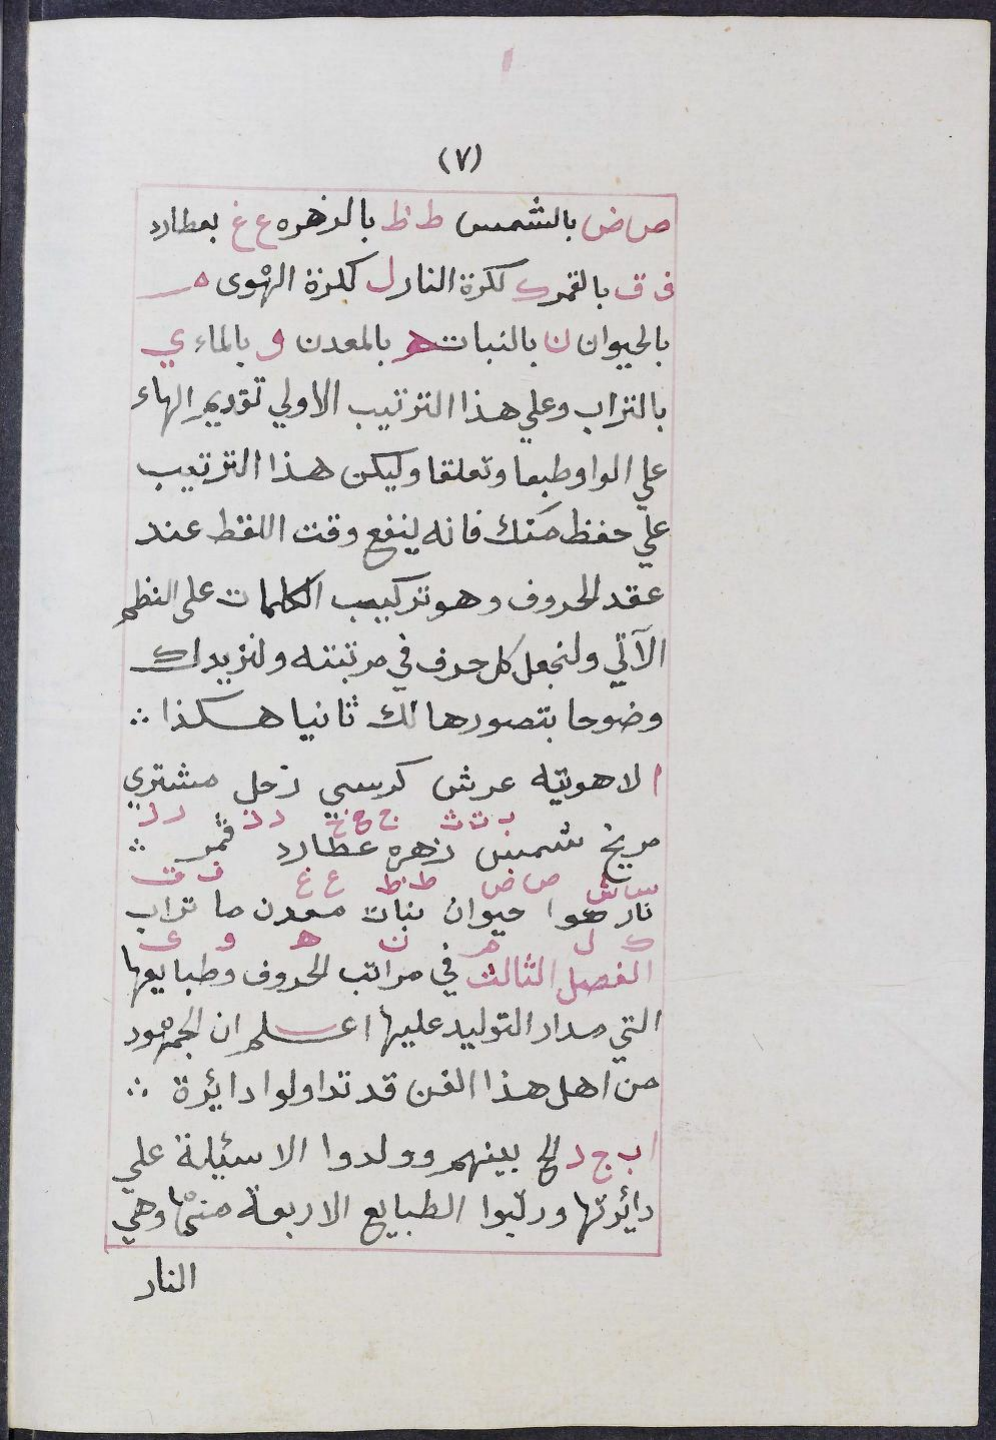 (٧)
ص ض بالشمس ط ظ بالزهره ع غ بعطارد
ف ق بالقمر ك لكرة النار ل لكرة الهوى م
بالحيوان ن بالنبات ه بالمعدن و بالماء ي
بالتراب وعلي هذا الترتيب الاولي تقديم الهاء
علي الواو طبعا وتعلقا وليكن هذا الترتيب
علي حفظ منك فانه ينفع وقت اللقط عند
عقد الحروف وهو تركيب الكلمات على النظم
الآتي ولنجعل كل حرف في مرتبته ولنزيدك
وضوحا بتصورها لك ثانيا هكذا ∴
ا لاهوتيه عرش كرسي زحل مشتري
ب ت ث ج ح خ د ذ ر ز
مريخ شمس زهره عطارد قمر ∴
س ش ص ض ط ظ ع غ ف ق
نار هوا حيوان نبات معدن ما تراب
ك ل م ن ه و ى
الفصل الثالث في مراتب الحروف وطبايعها
التي مدار التوليد عليها اعلم ان الجمهور
من اهل هذا الفن قد تداولوا دائرة ∴
ا ب ج د الخ بينهم وولدوا الاسئيلة علي
دائرتها ورتبوا الطبايع الاربعة منها وهي
النار